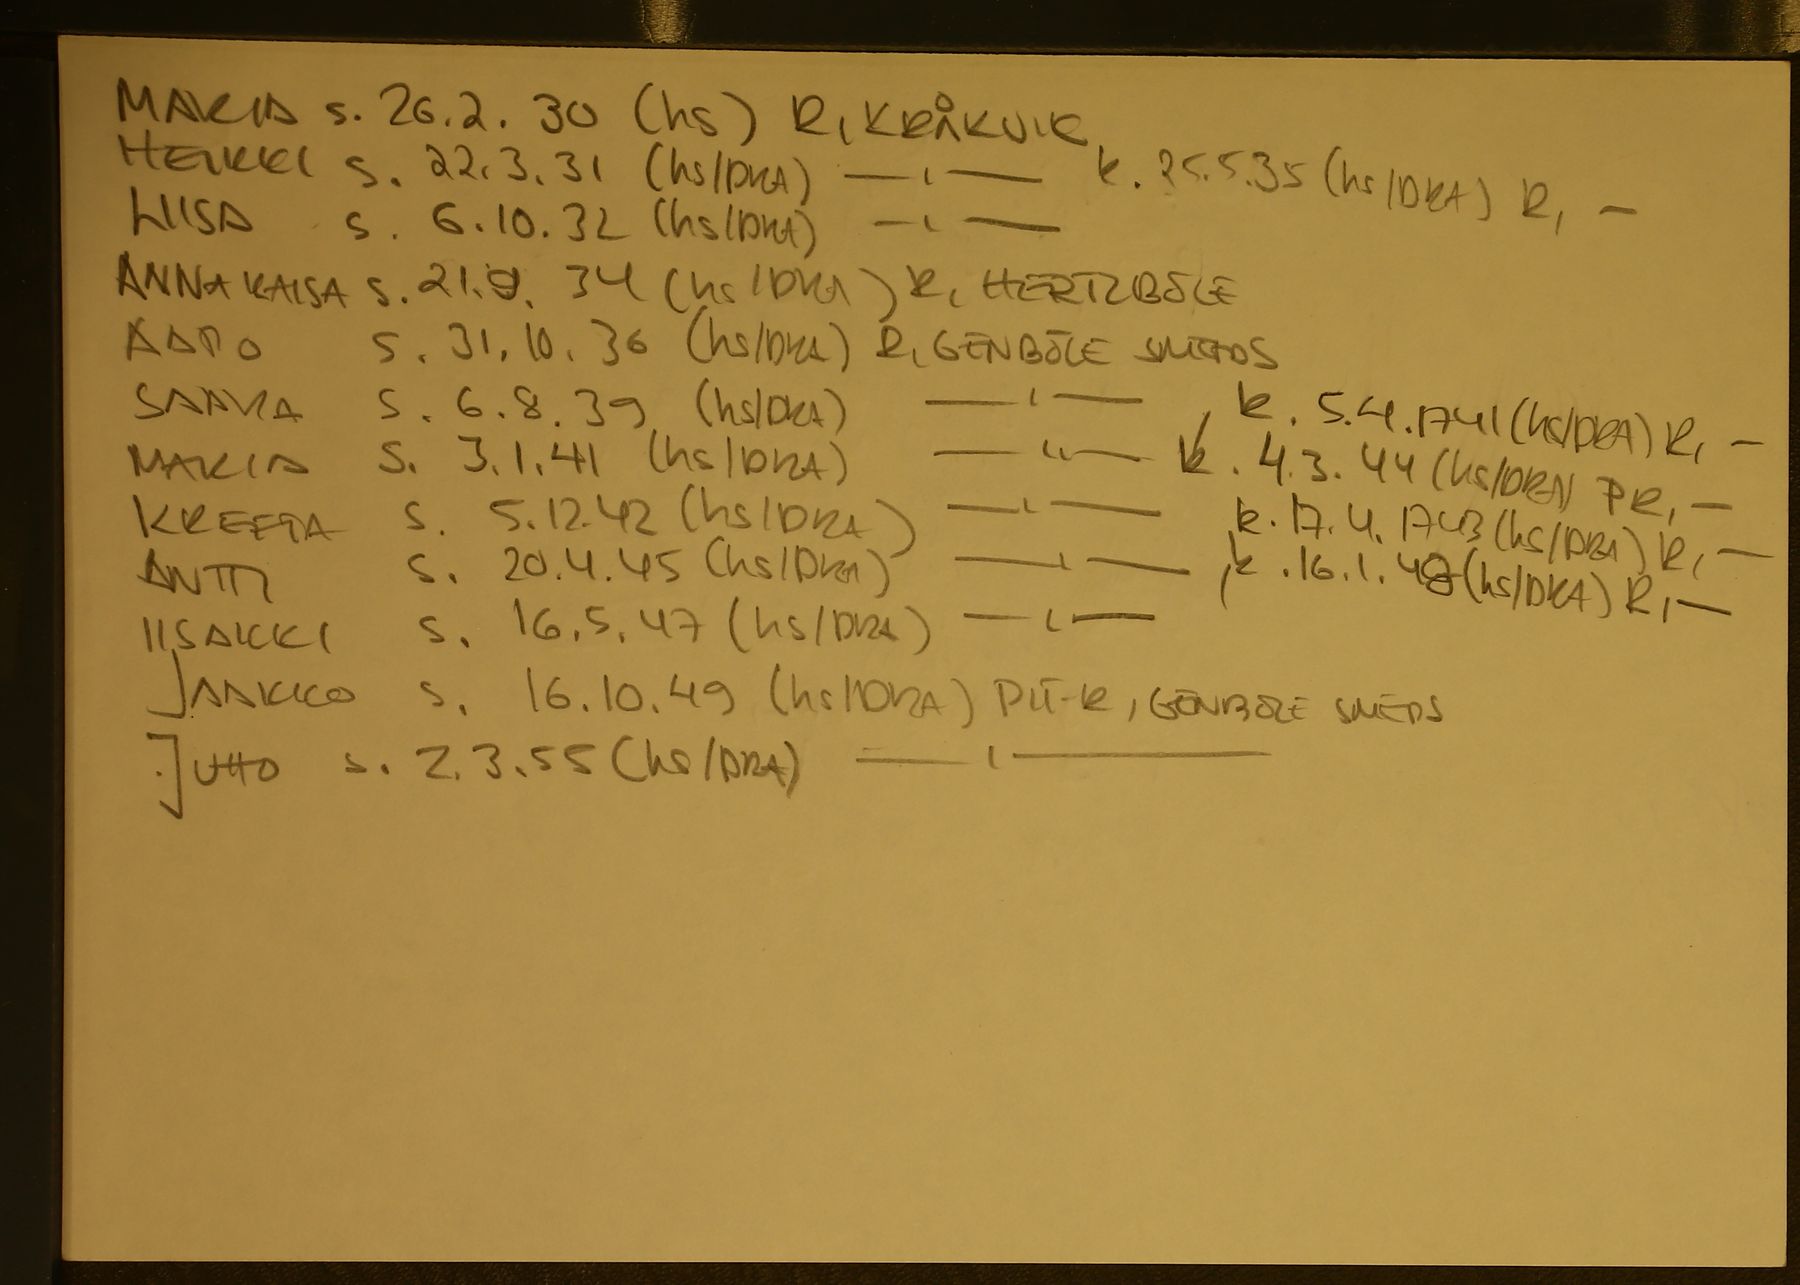 MARIA s. 26.2.30 (hs) R, KRÅKVIK
HEIKKI s. 22.3.31 (hs/DRA) —"— k. 25.5.35 (hs/DRA) R, —
LIISA s. 6.10.32 (hs/DRA) —"—
ANNA KAISA s. 21.9.34 (hs/DRA) R, HERTZBÖLE
AAPO s. 31.10.36 (hs/DRA) R, GENBÖLE SMEDS
SAARA s. 6.8.39 (hs/DRA) —"—, k. 5.4.1741 (hs/DRA) R, —
MARIA s. 3.1.41 (hs/DRA) —"— k. 4.3.44 (hs/DRA) PR, —
KREETA s. 5.12.42 (hs/DRA) —"— k. 17.4.1743 (hs/DRA) R, —
ANTTI s. 20.4.45 (hs/DRA) —"—, k. 16.1.48 (hs/DRA) R, —
IISAKKI s. 16.5.47 (hs/DRA) —"—
JAAKKO s. 16.10.49 (hs/DRA) PIT-R, GENBÖLE SMEDS
JUHO s. 2.3.55 (hs/DRA) —"—